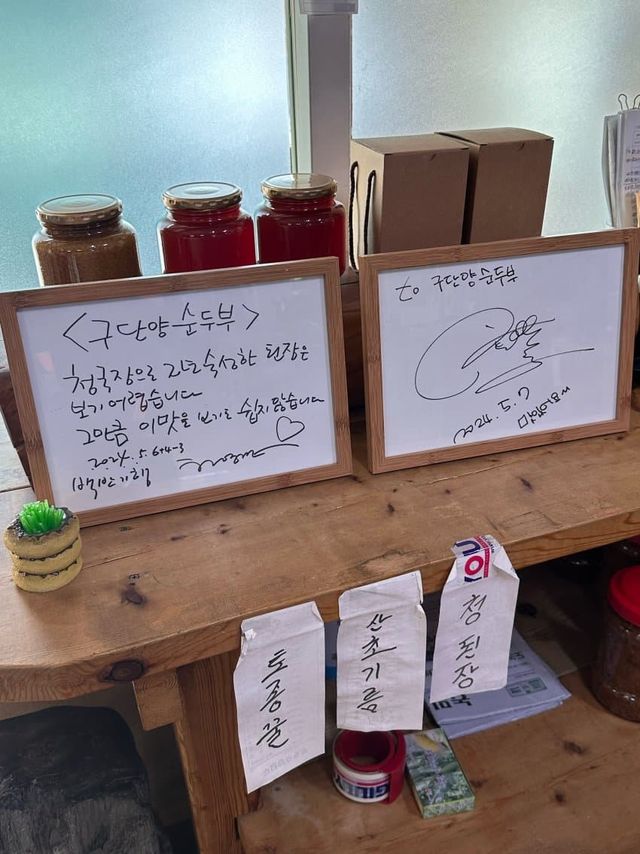 <구단양 순두부>
청국장으로 고도숙성한 된장은
보기 어렵습니다
그만큼 이맛을 보기도 쉽지 않습니다
2024. 5. 6
백반기행
to 구단양순두부
2024. 5.
토종꿀
산초기름
청된장
YOU